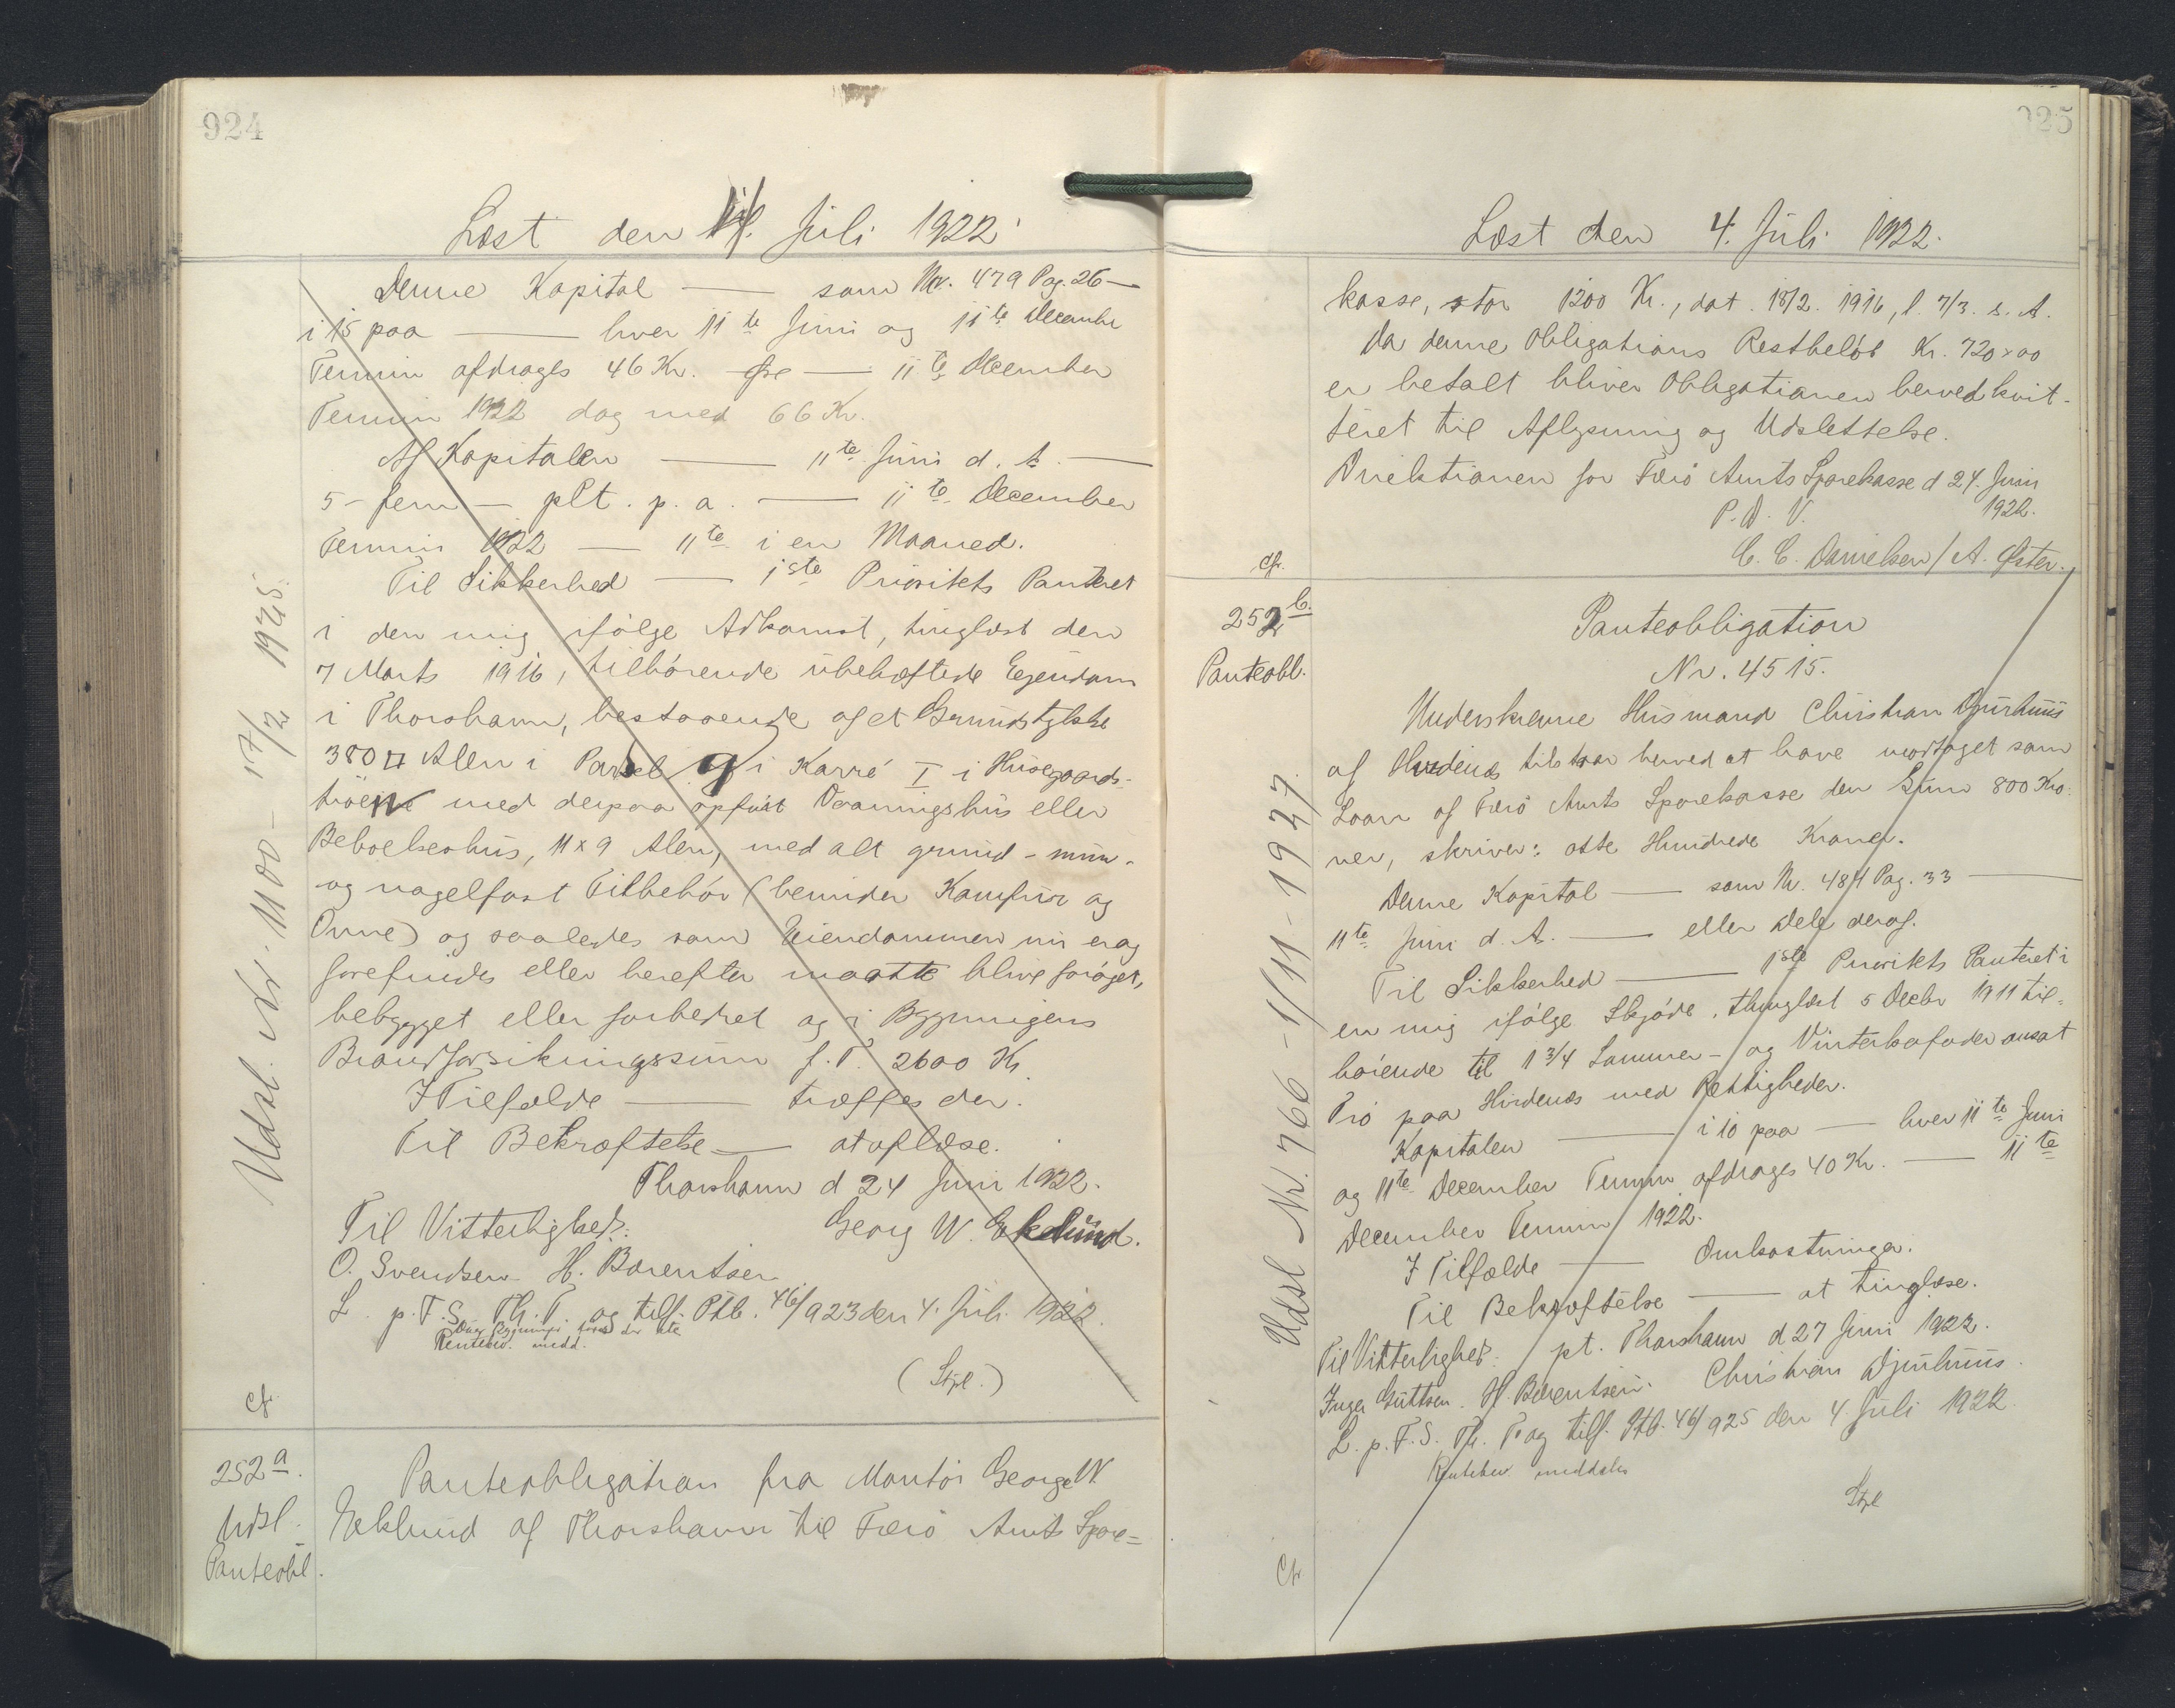 924
Læst den 4. Juli 1922
Denne Kapital — som Nr. 479 Pag. 26 —
i 15 paa — hver 11te Juni og 11te Decembr
Termin afdrages 46 Kr. — 11te December
Termin 1922 dog med 66 Kr.
Af Kapitalen — 11te Juni d. A. —
5 - fem - pCt. p. a. — 11te December
Termin 1922 — 11te i en Maaned.
Til Sikkerhed — 1ste Prioritets Panteret
i den mig ifölge Adkomst, tinglæst den
7 Marts 1916, tilhörende übehæftede Ejendom
i Thorshavn, bestaaende af et Grundstykke
380 □ Alen i Parcel g i Karré I i Husegaards-
tröen med derpaa opfört Vaaningshus eller
Beboelseshus, 11 x 9 Alen, med alt grund- mur-
og nagelfast Tilbehör (herunder Komfur og
Ovne) og saaledes som Eiendommen nu er og
forefindes eller herefter maatte blive foröget,
bebygget eller forbedret og i Bygningens
Brandforsikringssum f. T. 2600 Kr.
I Tilfælde — træffes der.
Til Bekræftelse — at aflæse.
Thorshavn d 24 Juni 1922.
Til Vitterlighed: Georg W. Eklund.
O. Svendsen H. Berentsen
L. p. F. S. Th. T. og tilf. Ptb. 46/923 den 4. Juli 1922.
Rentebev. medd.
(Stpl.)
Udsl. Nr. 1100 - 17/2 1925.
Cfr
252a.
Udsl.
Panteobl.
Panteobligation fra Montör George W.
Eklund af Thorshavn til Færö Amts Spare-
925
Læst den 4. Juli 1922.
kasse, stor 1200 Kr., dat. 18/2. 1916, l. 7/3. s. A.
Da denne Obligations Restbelöb Kr. 720 x 00
er betalt bliver Obligationen herved kvit-
teret til Aflysning og Udslettelse.
Direktionen for Færö Amts Sparekasse d 24. Juni
1922.
P. D. V.
C. C. Danielsen / A. Øster.
Cfr.
252b.
Panteobl.
Panteobligation
Nr. 4515.
Underskrevne Husmand Christian Djurhuus
af Hvidenæs tilstaar herved at have modtaget som
Laan af Færö Amts Sparekasse den Sum 800 Kro-
ner, skriver: otte Hundrede Kroner.
Denne Kapital — som Nr. 484 Pag. 33 —
11te Juni d. A. — eller Dele deraf.
Til Sikkerhed — 1ste Prioritets Panteret i
en mig ifölge Skjöde, thinglæst 5 Decbr 1911 til-
hörende til 1 3/4 Lammer- og Vinterkofoder ansat
Trö paa Hvidenæs med Rettigheder.
Kapitalen — i 10 paa — hver 11te Juni
og 11te December Termin afdrages 40 Kr. — 11te
December Termin 1922.
I Tilfælde — Omkostninger.
Til Bekræftelse — at tinglæse.
Til Vitterlighed: pt. Thorshavn d 27 Juni 1922.
Inger Guttesen. H. Berentsen. Christian Djurhuus.
L. p. F. S. Th. T. og tilf. Ptb. 46/925 den 4. Juli 1922
Rentebev. meddeles
Stpl
Udsl Nr. 766 - 1/11 - 1927.
Cfr